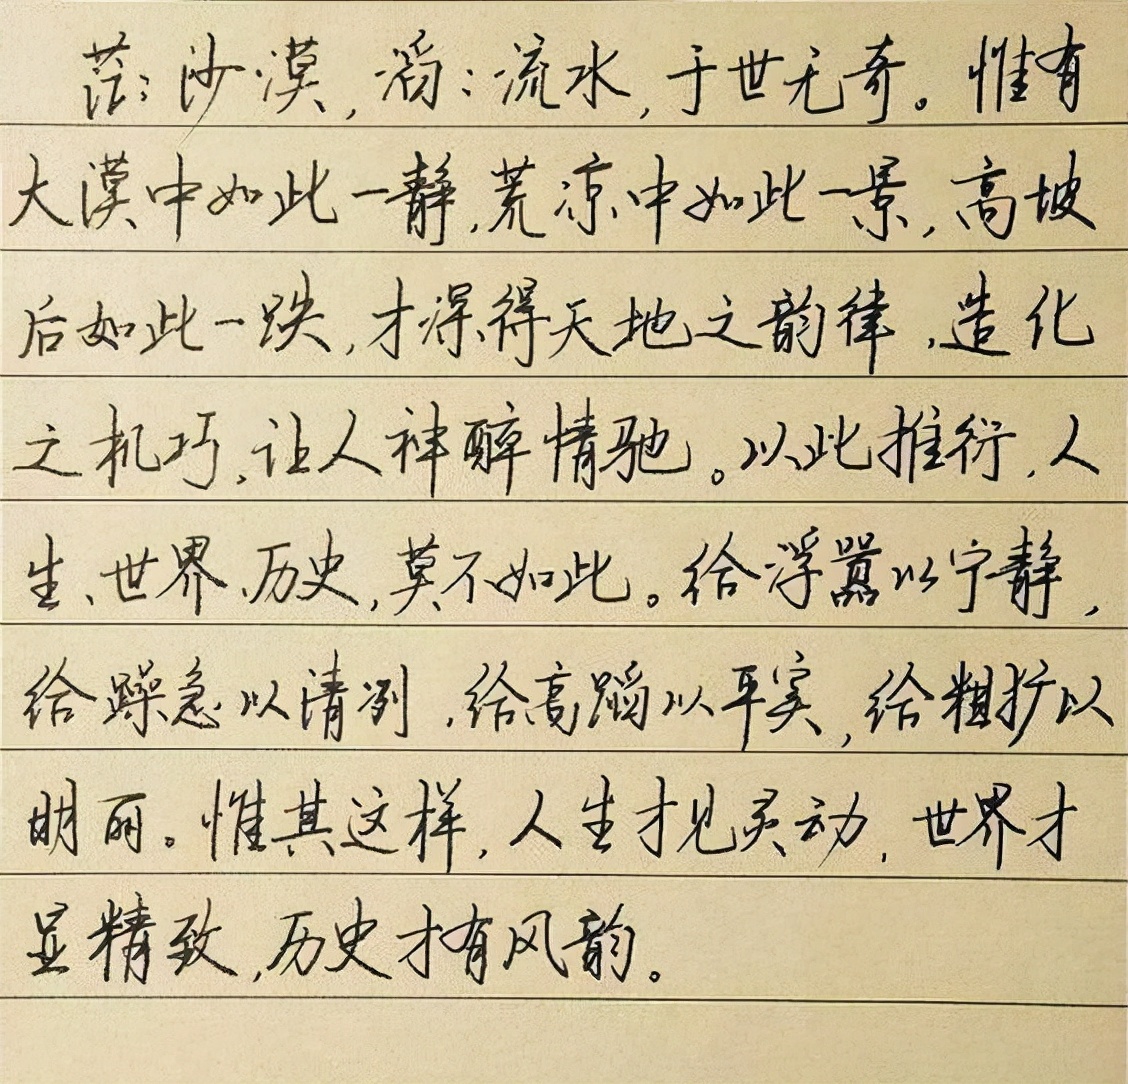 茫：沙漠，滔：流水，于世无奇。惟有
大漠中如此一静，荒凉中如此一景，高坡
后如此一跌，才深得天地之韵律，造化
之机巧，让人神醉情驰。以此推衍，人
生、世界、历史，莫不如此。给浮嚣以宁静，
给躁急以清冽，给高蹈以平实，给粗犷以
明丽。惟其这样，人生才见灵动，世界才
显精致，历史才有风韵。